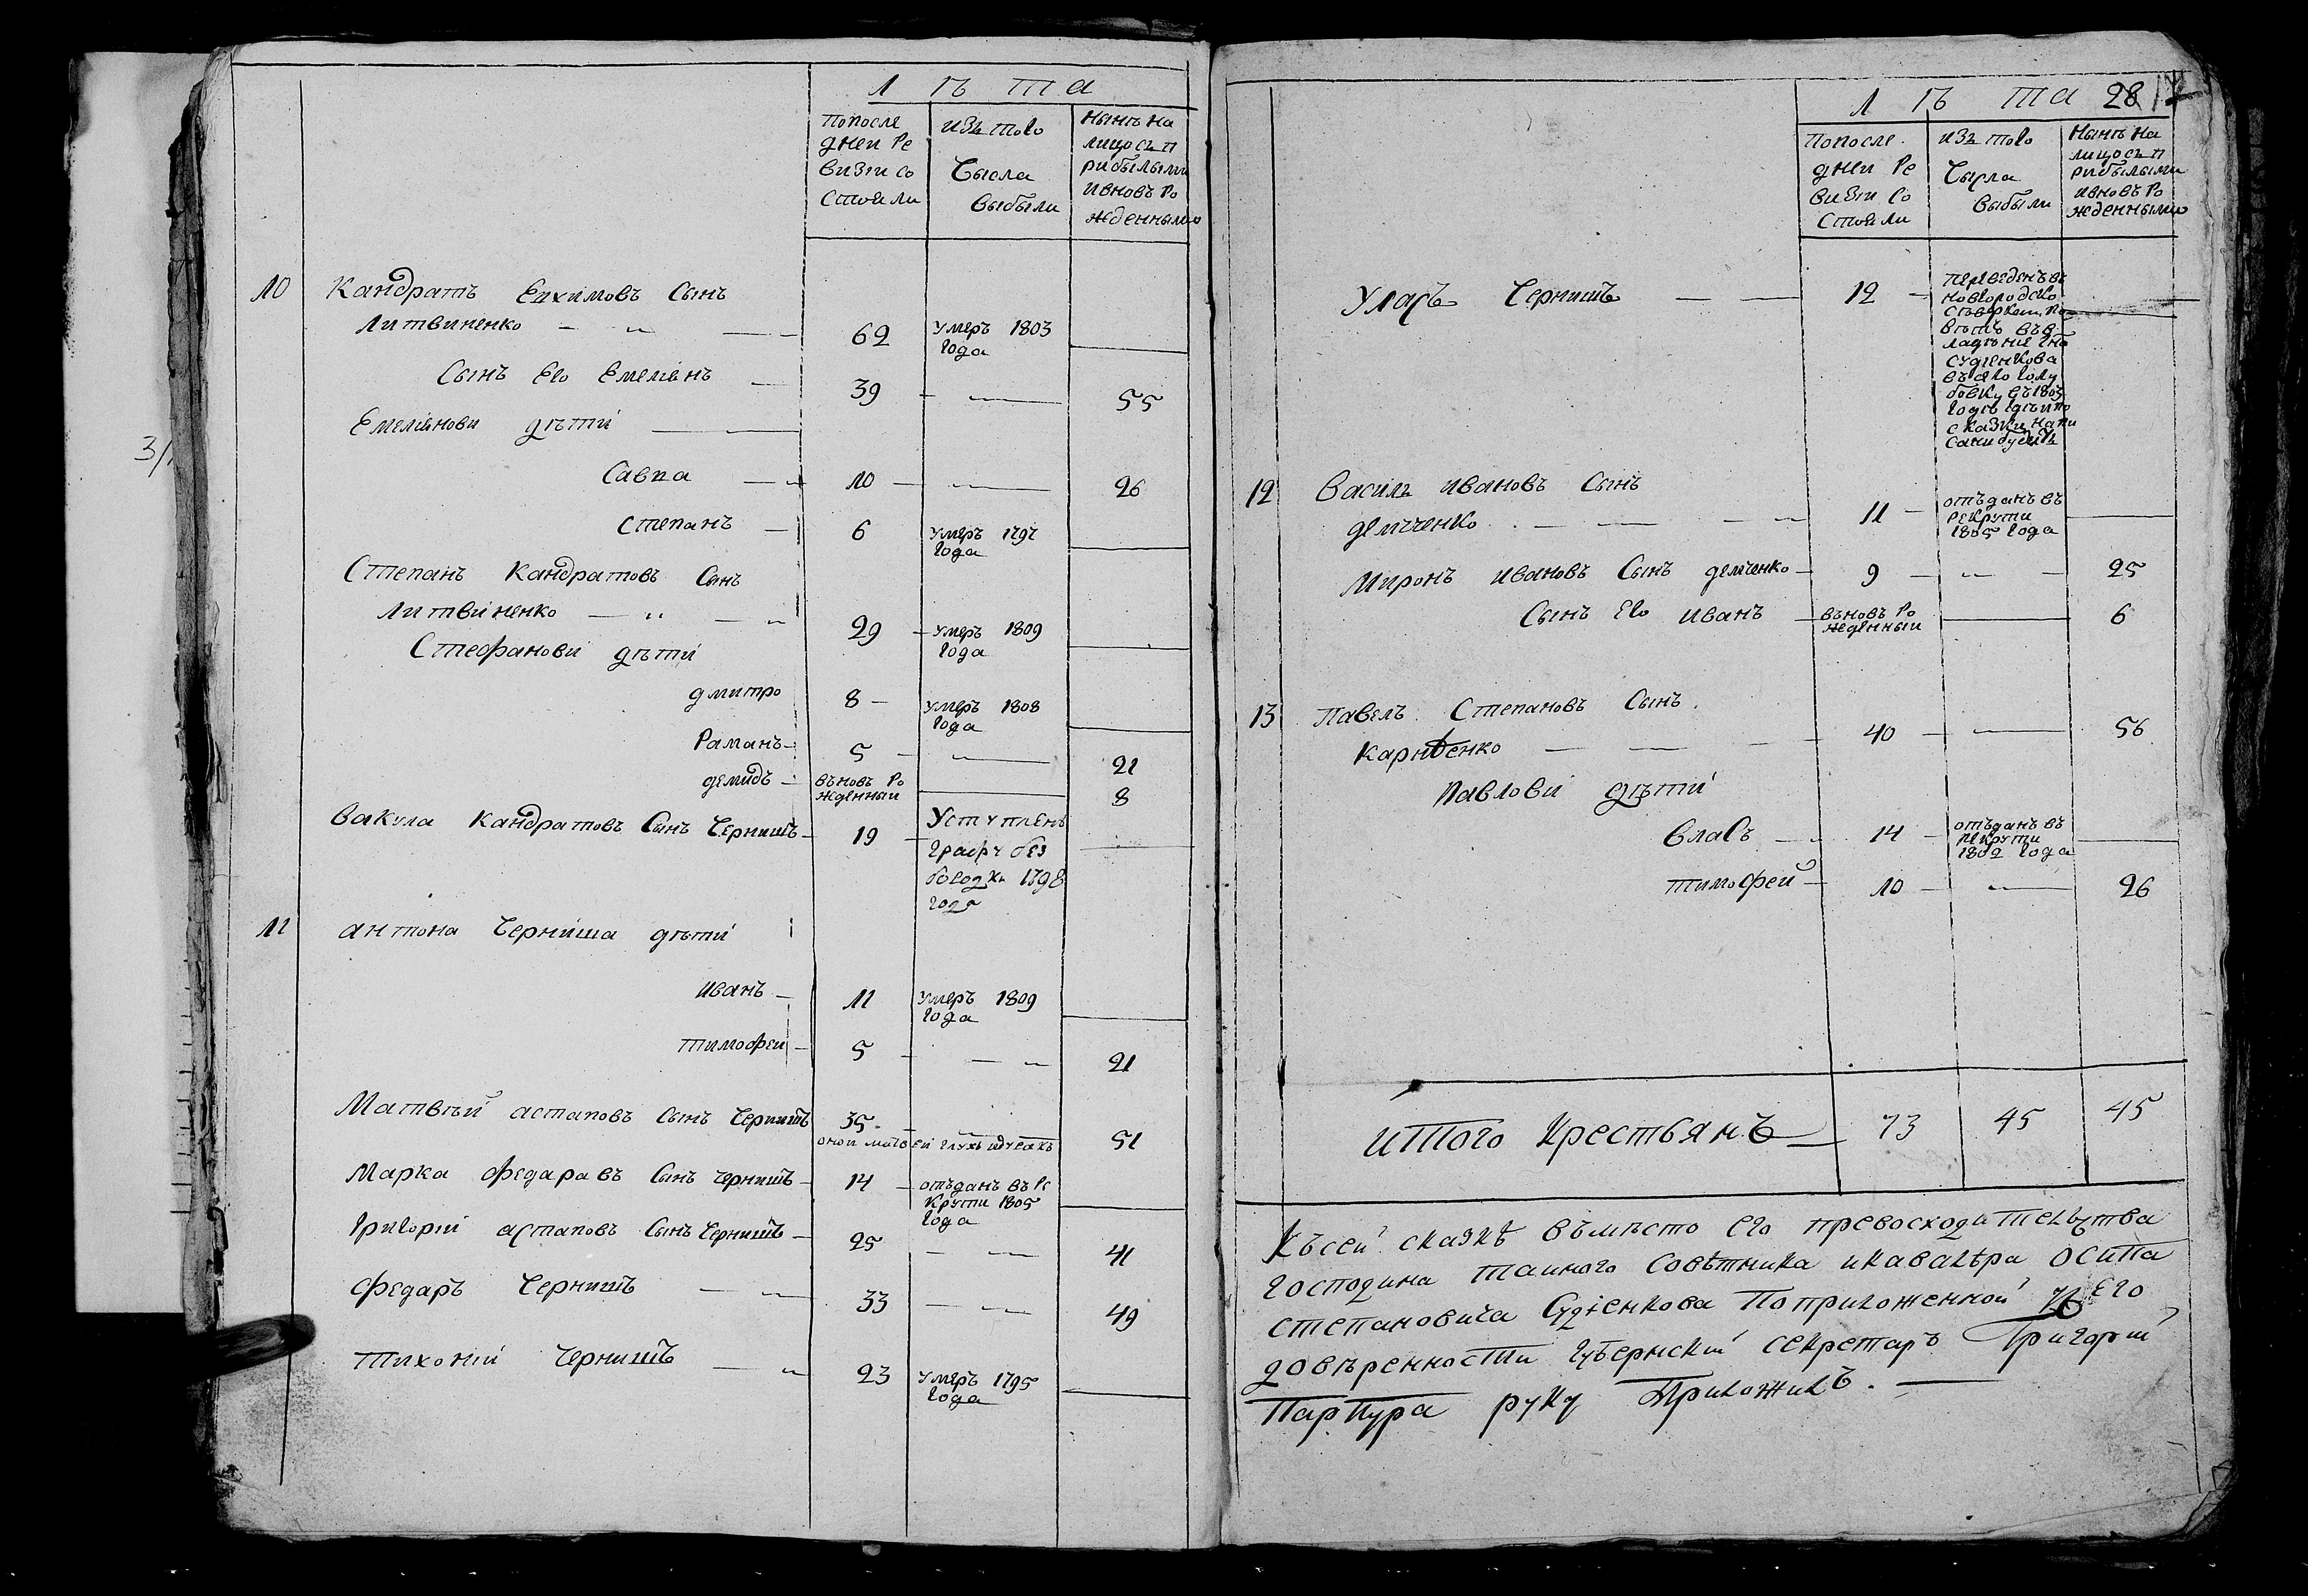 3/
Л ѣ та
попосле
дней ре
визи со
стояли
изъ того
числа
выбыли
Нынѣ на
лицо съ п
рибылыми
и вновъ ро
жденными
10 Кандратъ Еихимовъ Сынъ
Литвиненко 62 умеръ 1803
года
Сынъ Его Емеліянъ 39 55
Емеліянови дѣти
Савка 10 26
Степанъ 6 умеръ 1797
года
Степанъ Кандратовъ Сынъ
Литвіненко 29 умеръ 1809
года
Стефанови дѣти
дмитро 8 умеръ 1808
года
Раманъ 5 21
демидъ въновъ ро
жденныи 8
Вакула Кандратовъ Сынъ Чернишъ 19 Уступленъ
графу без
бородки 1798
года
11 антона Черниша дѣти
иванъ 11 умеръ 1809
года
тимофеи 5 21
Матвѣй астаповъ сынъ Чернишъ 35 51
оной матвей глухъ
Марка федаравъ Сынъ чернишъ 14 отъданъ въ ре
крути 1805
года
григорій астаповъ Сынъ Чернишъ 25 41
федаръ Чернишъ 33 49
тихоній Чернишъ 23 умеръ 1795
года
Л ѣ та 28
попосле
дней ре
визи со
стояли
изъ того
числа
выбыли
Нынѣ на
лицо съ п
рибылыми
и вновъ ро
жденными
Уласъ Чернишъ 12 переведенъ въ
новгородско
северкои по
вѣтъ въ в
ладѣние гна
судиенкова
въ село голу
бовку въ 1805
годѣ где и по
сказки напи
санъ будетъ
12 Василь ивановъ Сынъ
демченко 11 отъданъ въ
рекрути
1805 года
Миронъ ивановъ Сынъ демченко 9 25
Сынъ Его иванъ въновъ ро
жденныи 6
13 Павелъ Степановъ Сынъ
Карпенко 40 56
Павлови дѣти
Власъ 14 отъданъ въ
рекрути
1802 года
тимофей 10 26
итого крестьянъ 73 45 45
Къ сей сказкѣ въмѣсто его превосходителъства
господина таиного совѣтника и кавалѣра осипа
степановича Судіенкова по приложенной его
довѣренности губернскій секретаръ Григорій
Парпура руку приложилъ.